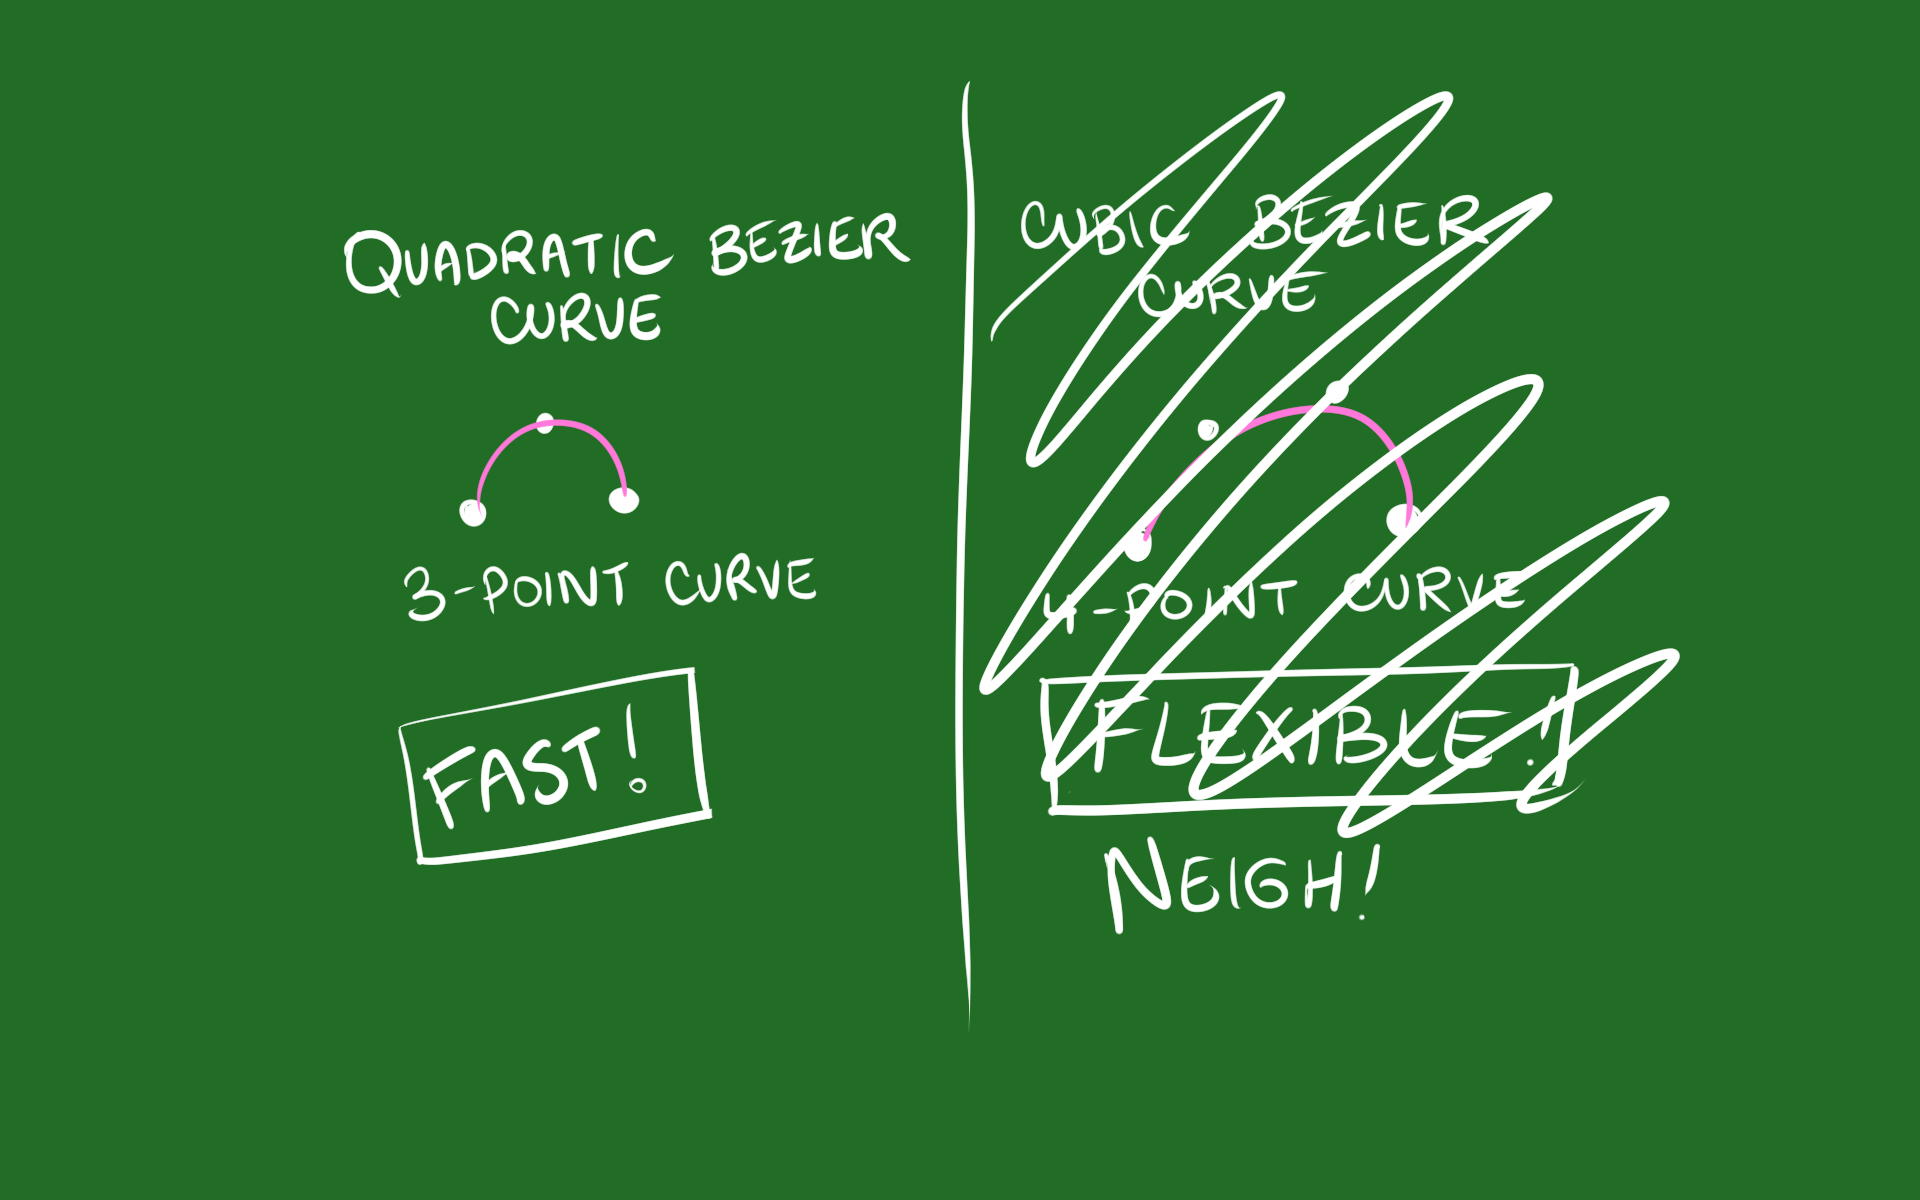 QUADRATIC BEZIER
CURVE
3-POINT CURVE
FAST!
CUBIC BEZIER
CURVE
4-POINT CURVE
FLEXIBLE!
NEIGH!